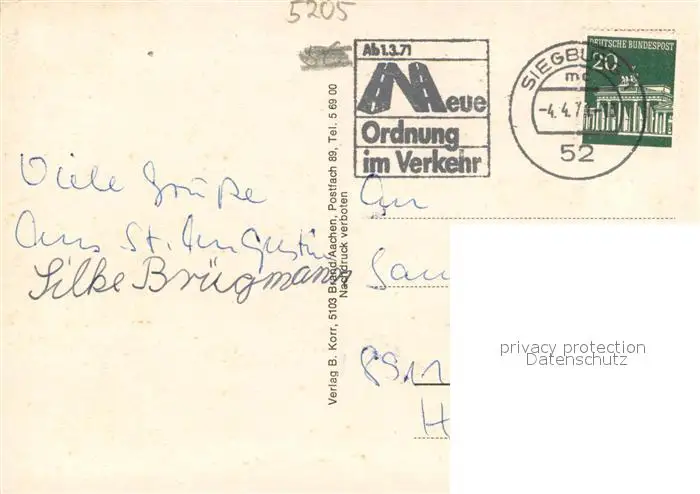 5205
Ab 1.3.71
Neue
Ordnung
im Verkehr
SIEGBURG
-4.4.7
52
DEUTSCHE BUNDESPOST
20
Viele Grüße
Aus St. Augustin
Silke Brügmann
Verlag B. Korr, 5103 Brand/Aachen, Postfach 89, Tel. 5 69 00
Nachdruck verboten
An
8911
H
privacy protection
Datenschutz